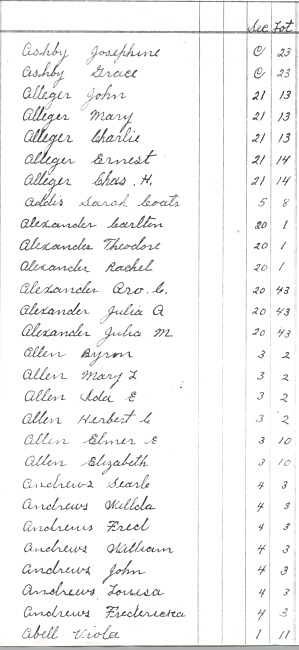 Sec Lot
Ashby Josephine C 23
Ashby Grace C 23
Alleger John 21 13
Alleger Mary 21 13
Alleger Charlie 21 13
Alleger Ernest 21 14
Alleger Chas. H. 21 14
Addis Sarah Coats 5 8
Alexander Carlten 20 1
Alexander Theodore 20 1
Alexander Rachel 20 1
Alexander Aro. C. 20 43
Alexander Julia A 20 43
Alexander Julia M 20 43
Allen Byron 3 2
Allen Mary L 3 2
Allen Ida E 3 2
Allen Herbert C 3 2
Allen Elmer E 3 10
Allen Elizabeth 3 10
Andrews Searle 4 3
Andrews Willda 4 3
Andrews Fred 4 3
Andrews William 4 3
Andrews John 4 3
Andrews Louisa 4 3
Andrews Fredericka 4 3
Abell Viola 1 11